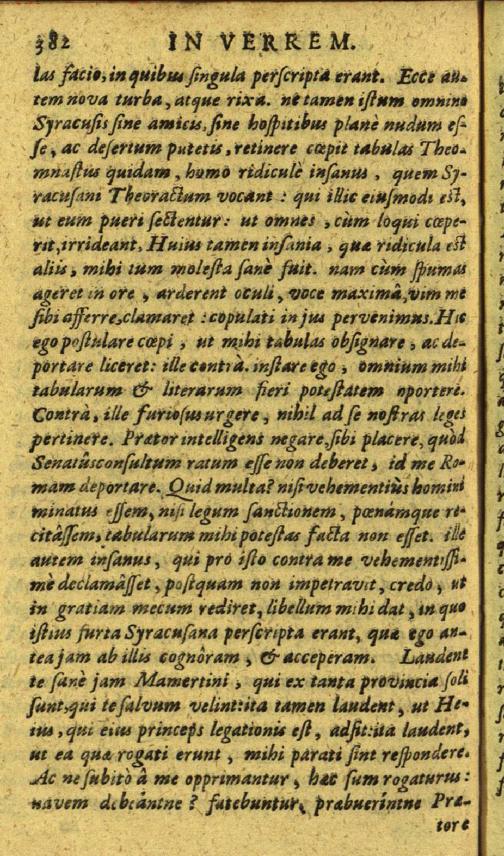 382 IN VERREM.
las facio, in quibus ſingula perſcripta erant. Ecce au-
tem nova turba, atque rixa. ne tamen iſtum omnino
Syracuſis ſine amicis, ſine hoſpitibus planè nudum eſ-
ſe, ac deſertum putetis, retinere cœpit tabulas Theo-
mnaſtus quidam, homo ridiculè inſanus, quem Sy-
racuſani Theoractum vocant : qui illic eiuſmodi eſt,
ut eum pueri ſectentur: ut omnes, cùm loqui cœpe-
rit, irrideant, Huius tamen inſania, quæ ridicula eſt
aliis, mihi tum moleſta ſanè fuit. nam cùm ſpumas
ageret in ore, arderent oculi, voce maximâ, vim me
ſibi afferre, clamaret : copulati in jus pervenimus. Hic
ego poſtulare cœpi, ut mihi tabulas obſignare, ac de-
portare liceret: ille contrà. inſtare ego, omnium mihi
tabularum & literarum fieri poteſtatem oportere.
Contrà, ille furioſus urgere, nihil ad ſe noſtras leges
pertinere. Prætor intelligens negare, ſibi placere, quòd
Senatûsconſultum ratum eſſe non deberet, id me Ro-
mam deportare. Quid multa? niſi vehementiùs homini
minatus eſſem, niſi legum ſanctionem, pœnamque re-
citâſſem, tabularum mihi poteſtas facta non eſſet. ille
autem inſanus, qui pro iſto contra me vehementiſſi-
mè declamâſſet, poſtquam non impetravit, credo, ut
in gratiam mecum rediret, libellum mihi dat, in quo
iſtius furta Syracuſana perſcripta erant, quæ ego an-
tea jam ab illis cognôram, & acceperam. Laudent
te ſanè jam Mamertini, qui ex tanta provincia ſoli
ſunt, qui te ſalvum velint: ita tamen laudent, ut He-
ius, qui eius princeps legationis eſt, adſit: ita laudent,
ut ea quæ rogati erunt, mihi parati ſint reſpondere.
Ac ne ſubitò à me opprimantur, hæc ſum rogaturus:
navem debeántne ? fatebuntur, præbuerintne Præ-
tore